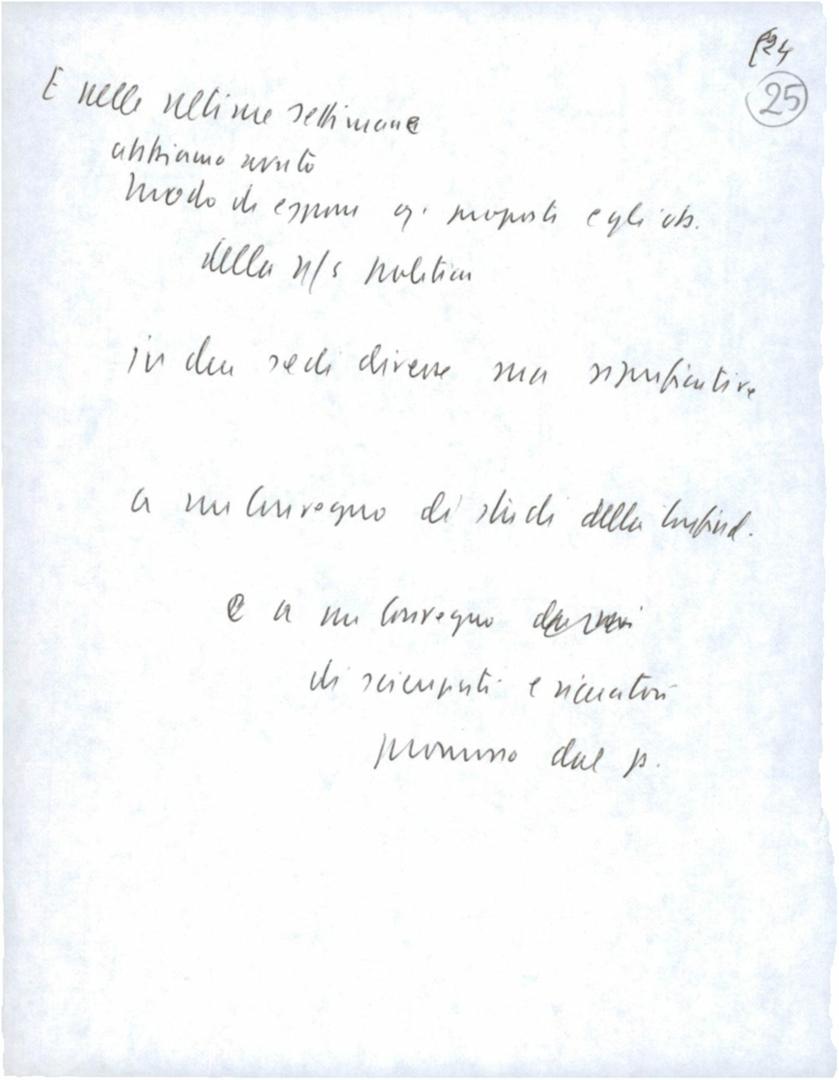 24
25
E nelle ultime settimane
abbiamo avuto
modo di esporre q. proposte e gli ob.
della n/s politica
in due sedi diverse ma significative
a un Convegno di studi della Confind.
e a un Convegno
di scienziati e ricercatori
promosso dal p.